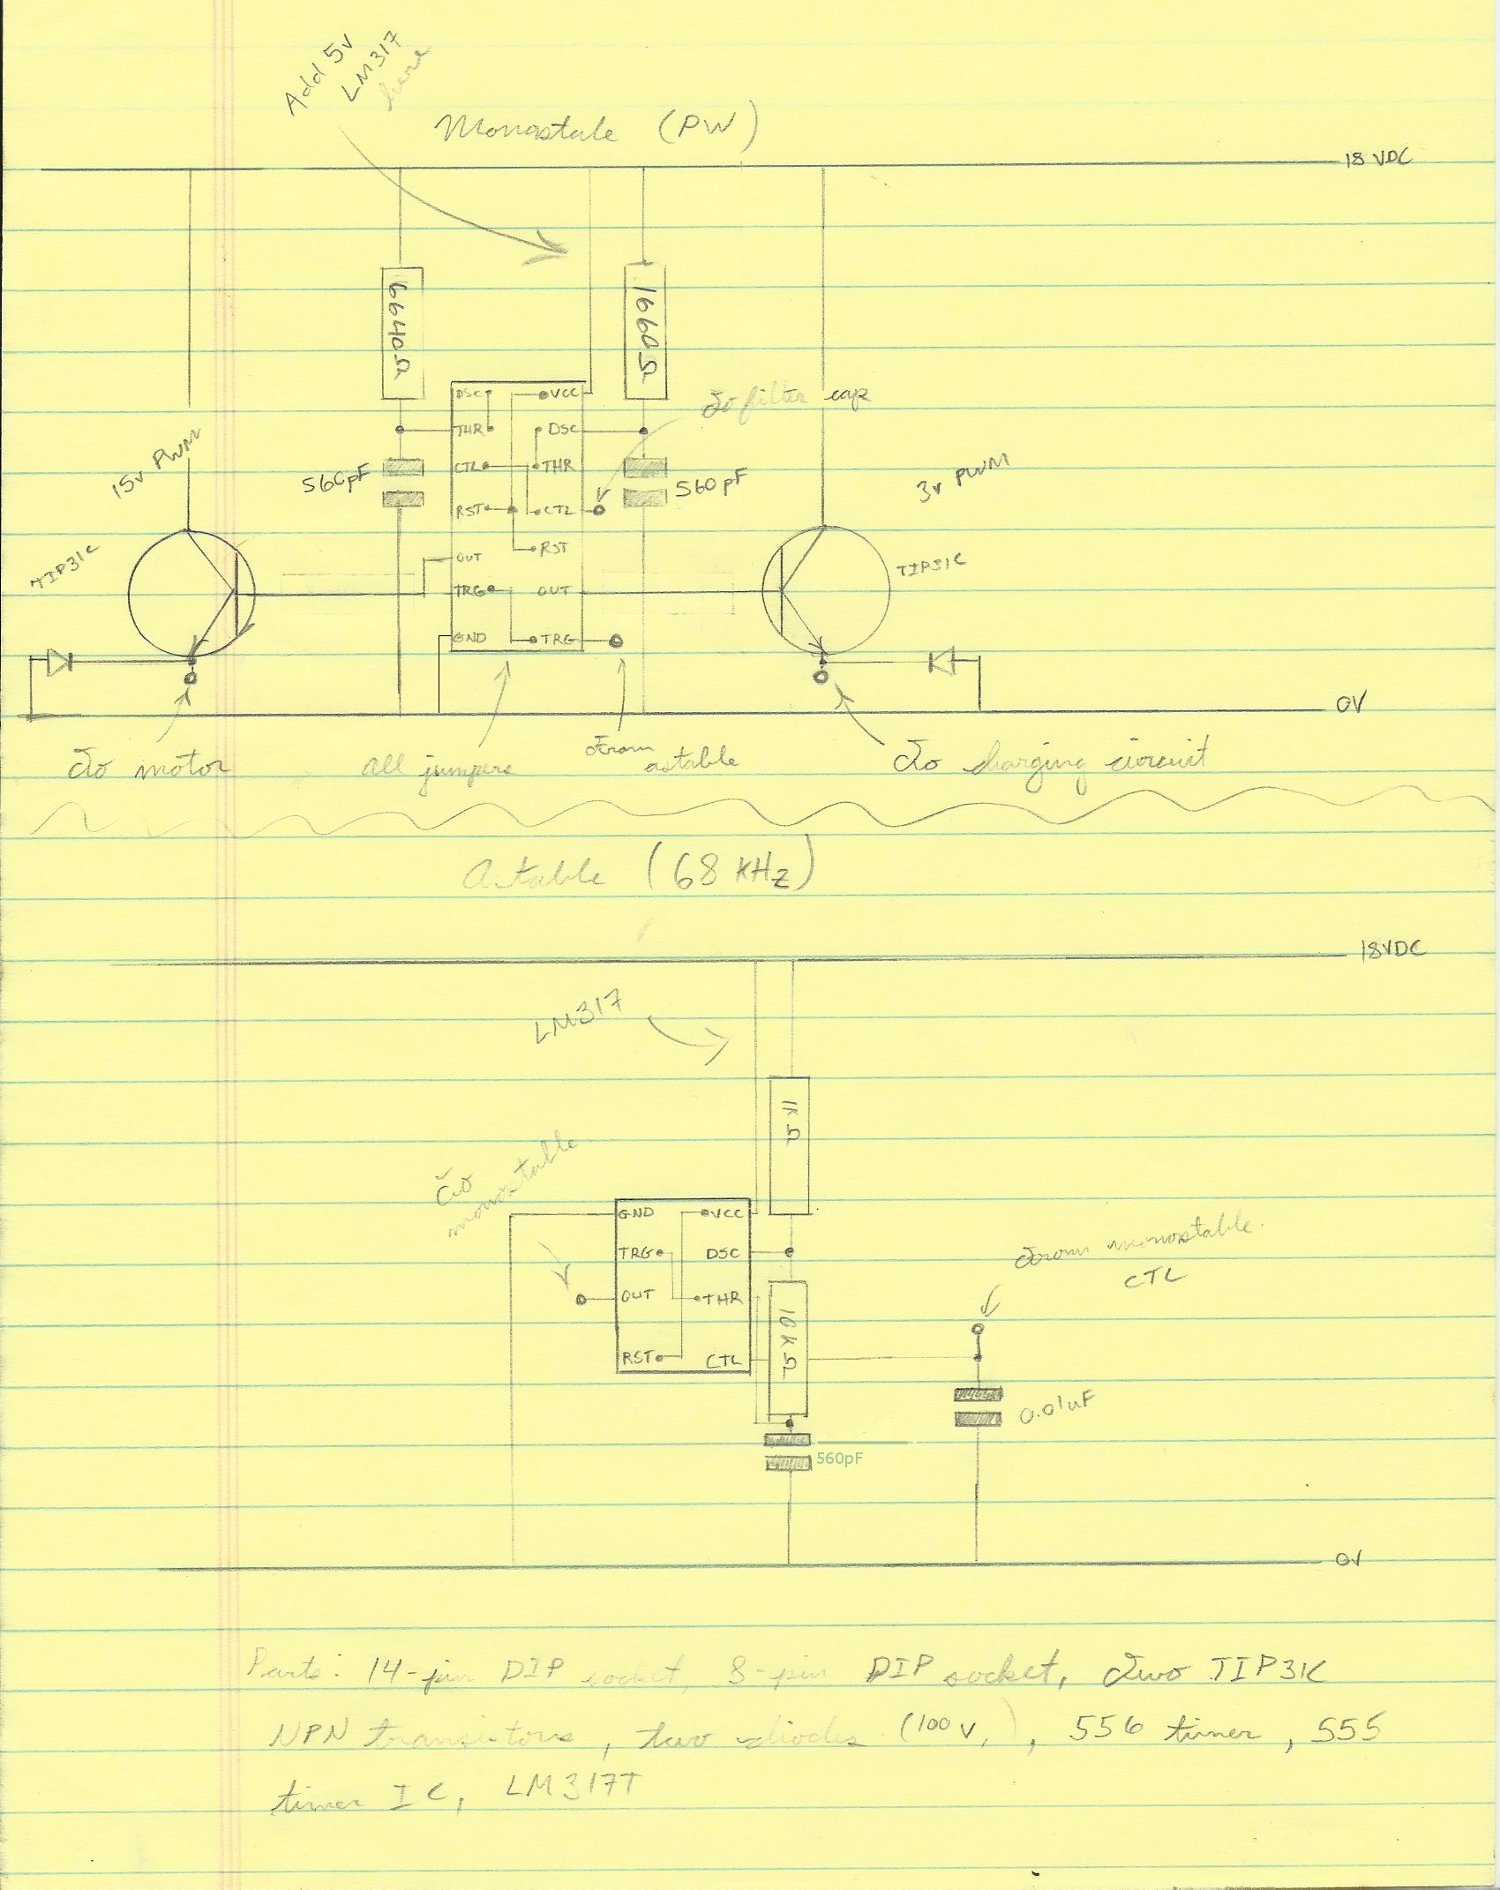 Add 5v
LM317
here
Monostale (PW)
18 VDC
6640Ω
1660Ω
DSC
VCC
THR
DSC
CTL
THR
RST
CTL
OUT
RST
TRG
OUT
GND
TRG
To filter cap
560pF
560pF
15v PWM
3v PWM
TIP31C
TIP31C
0V
To motor
All jumpers
From
astable
To charging circuit
Astable (68 KHz)
18VDC
LM317
1KΩ
To
monostable
GND
VCC
TRG
DSC
OUT
THR
RST
CTL
10KΩ
From monostable
CTL
0.01uF
560pF
0V
Parts: 14-pin DIP socket, 8-pin DIP socket, two TIP31C
NPN transistors, two diodes (100v, ), 556 timer, 555
timer IC, LM317T